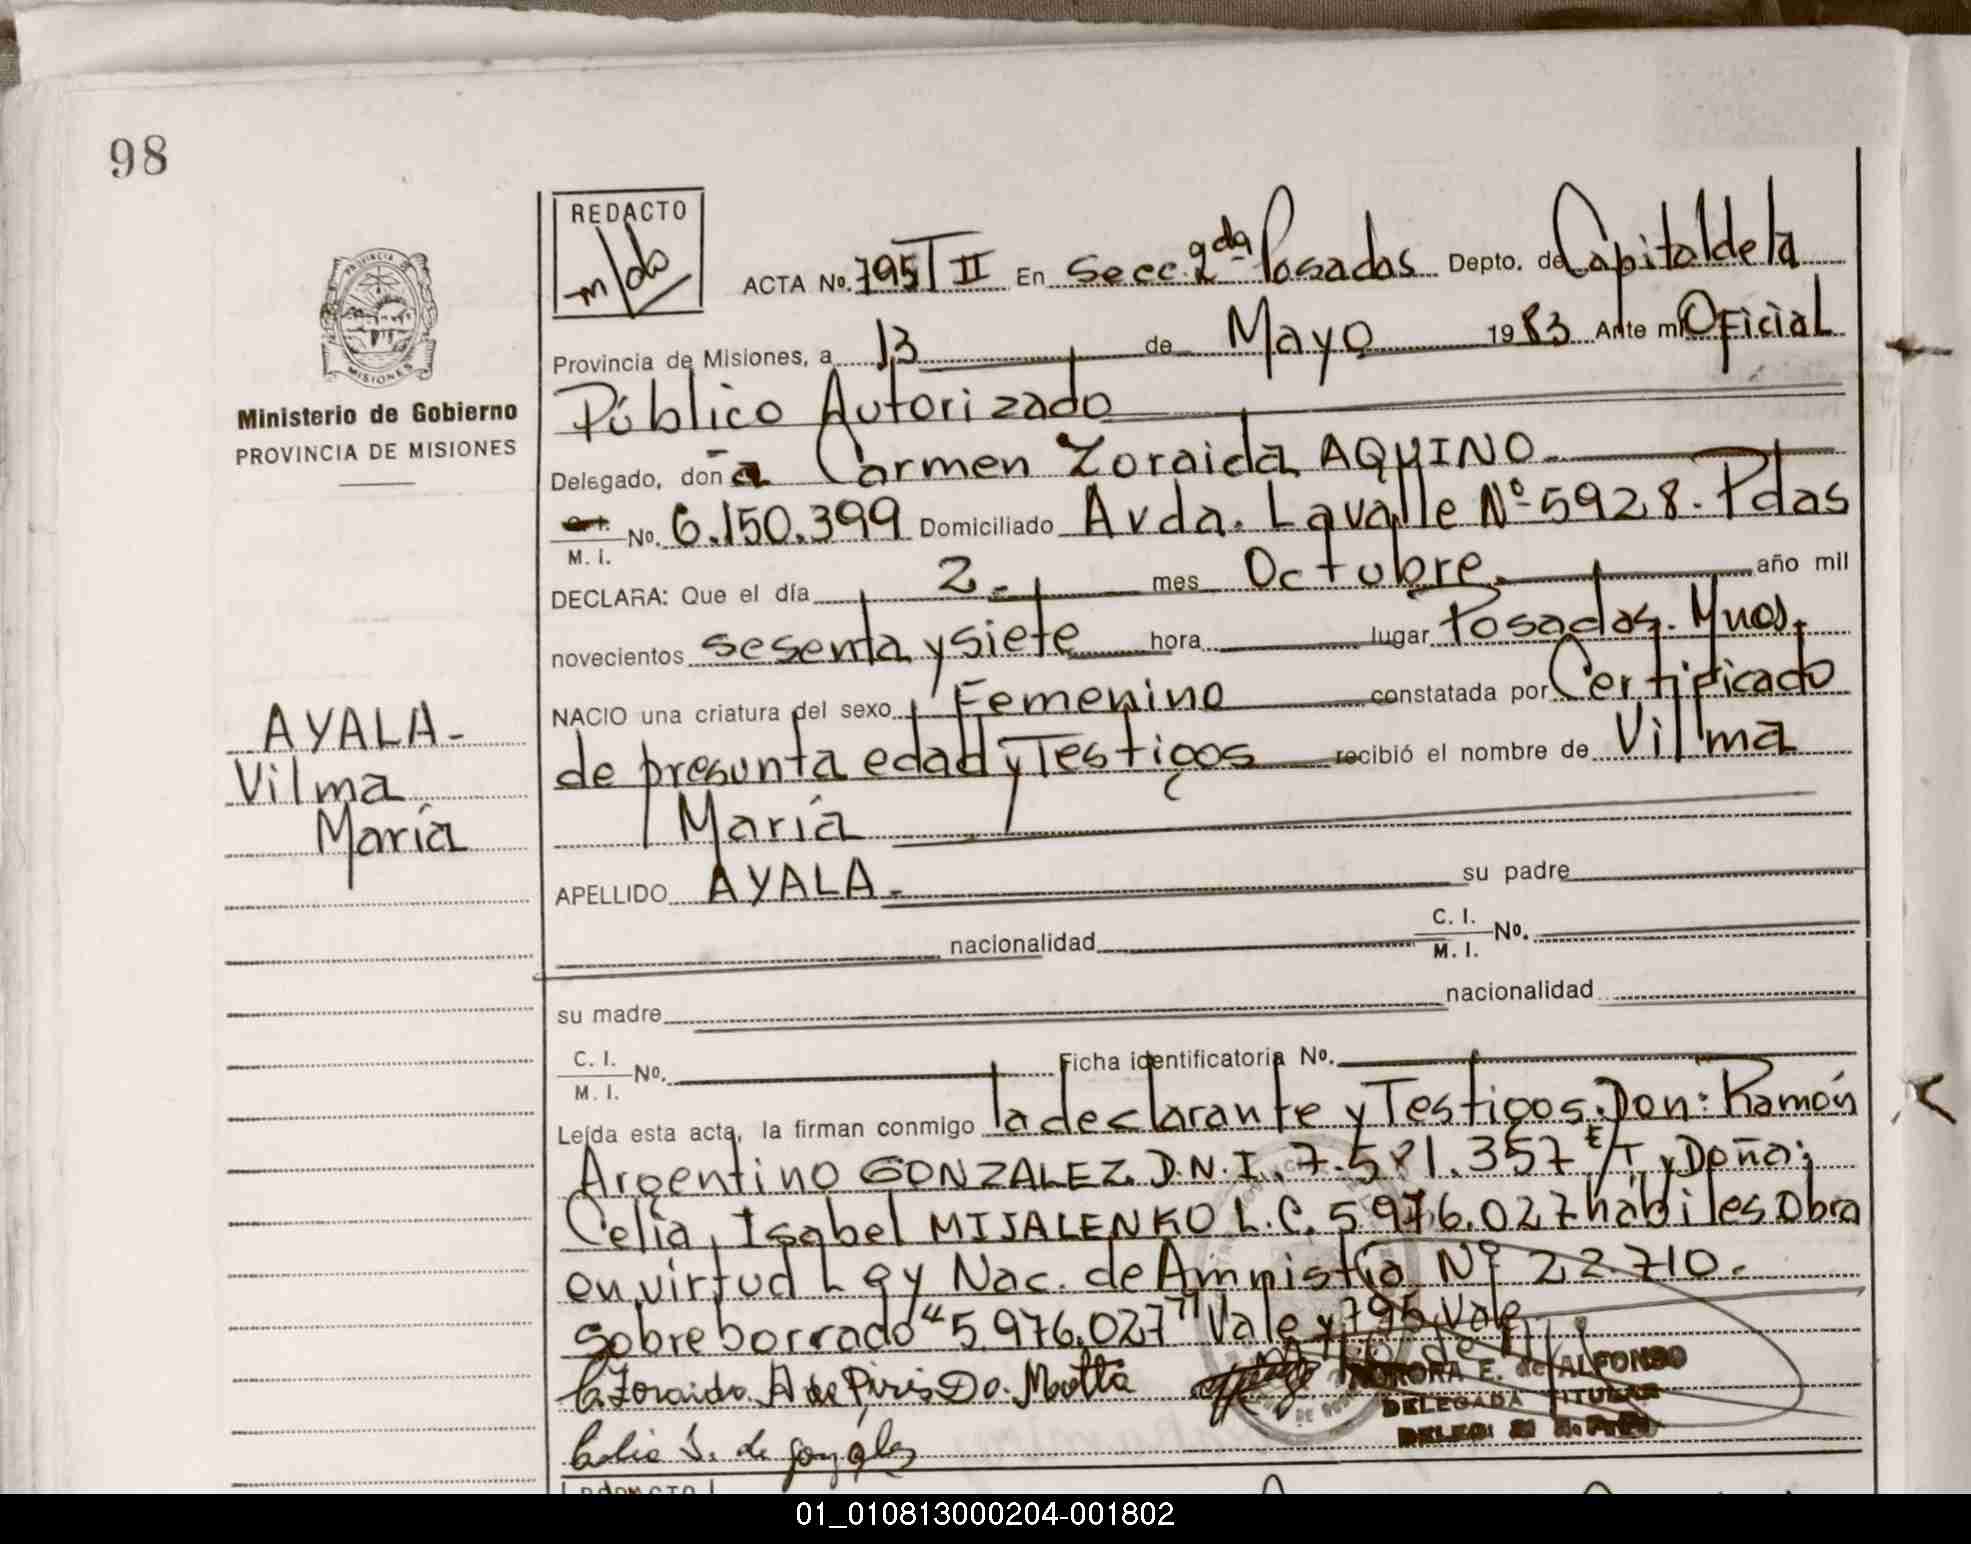 98
REDACTO
ACTA No. 795 T II En Secc. 2da Posadas Depto. de Capital de la
Provincia de Misiones, a 13 de Mayo 1983 Ante mi Oficial
Público Autorizado
Delegado, doña Carmen Zoraida AQUINO.
M. I. No. 6.150.399 Domiciliado Avda. Lavalle Nº 5928. Pdas
DECLARA: Que el día 2- mes Octubre año mil
novecientos sesenta y siete hora lugar Posadas. Mnes.
NACIO una criatura del sexo Femenino constatada por Certificado
de presunta edad y Testigos recibió el nombre de Vilma
María
APELLIDO AYALA- su padre
nacionalidad C. I. M. I. No.
su madre nacionalidad
C. I. M. I. No. Ficha identificatoria No.
Leída esta acta, la firman conmigo la declarante y Testigos. Don: Ramón
Argentino GONZALEZ. D.N.I. 7.581.357 E/T y Doña:
Celia Isabel MIJALENKO L.C. 5.976.027 hábiles Obra
en virtud Ley Nac. de Amnistía Nº 22.710.
Sobreborrado "5.976.027" Vale y 795 Vale
C. Zoraida A de Piris Da. Motta
Celia I. de González
NORA E. de ALFONSO
DELEGADA TITULAR
PROVINCIA
MISIONES
Ministerio de Gobierno
PROVINCIA DE MISIONES
AYALA-
Vilma
María
01_010813000204-001802